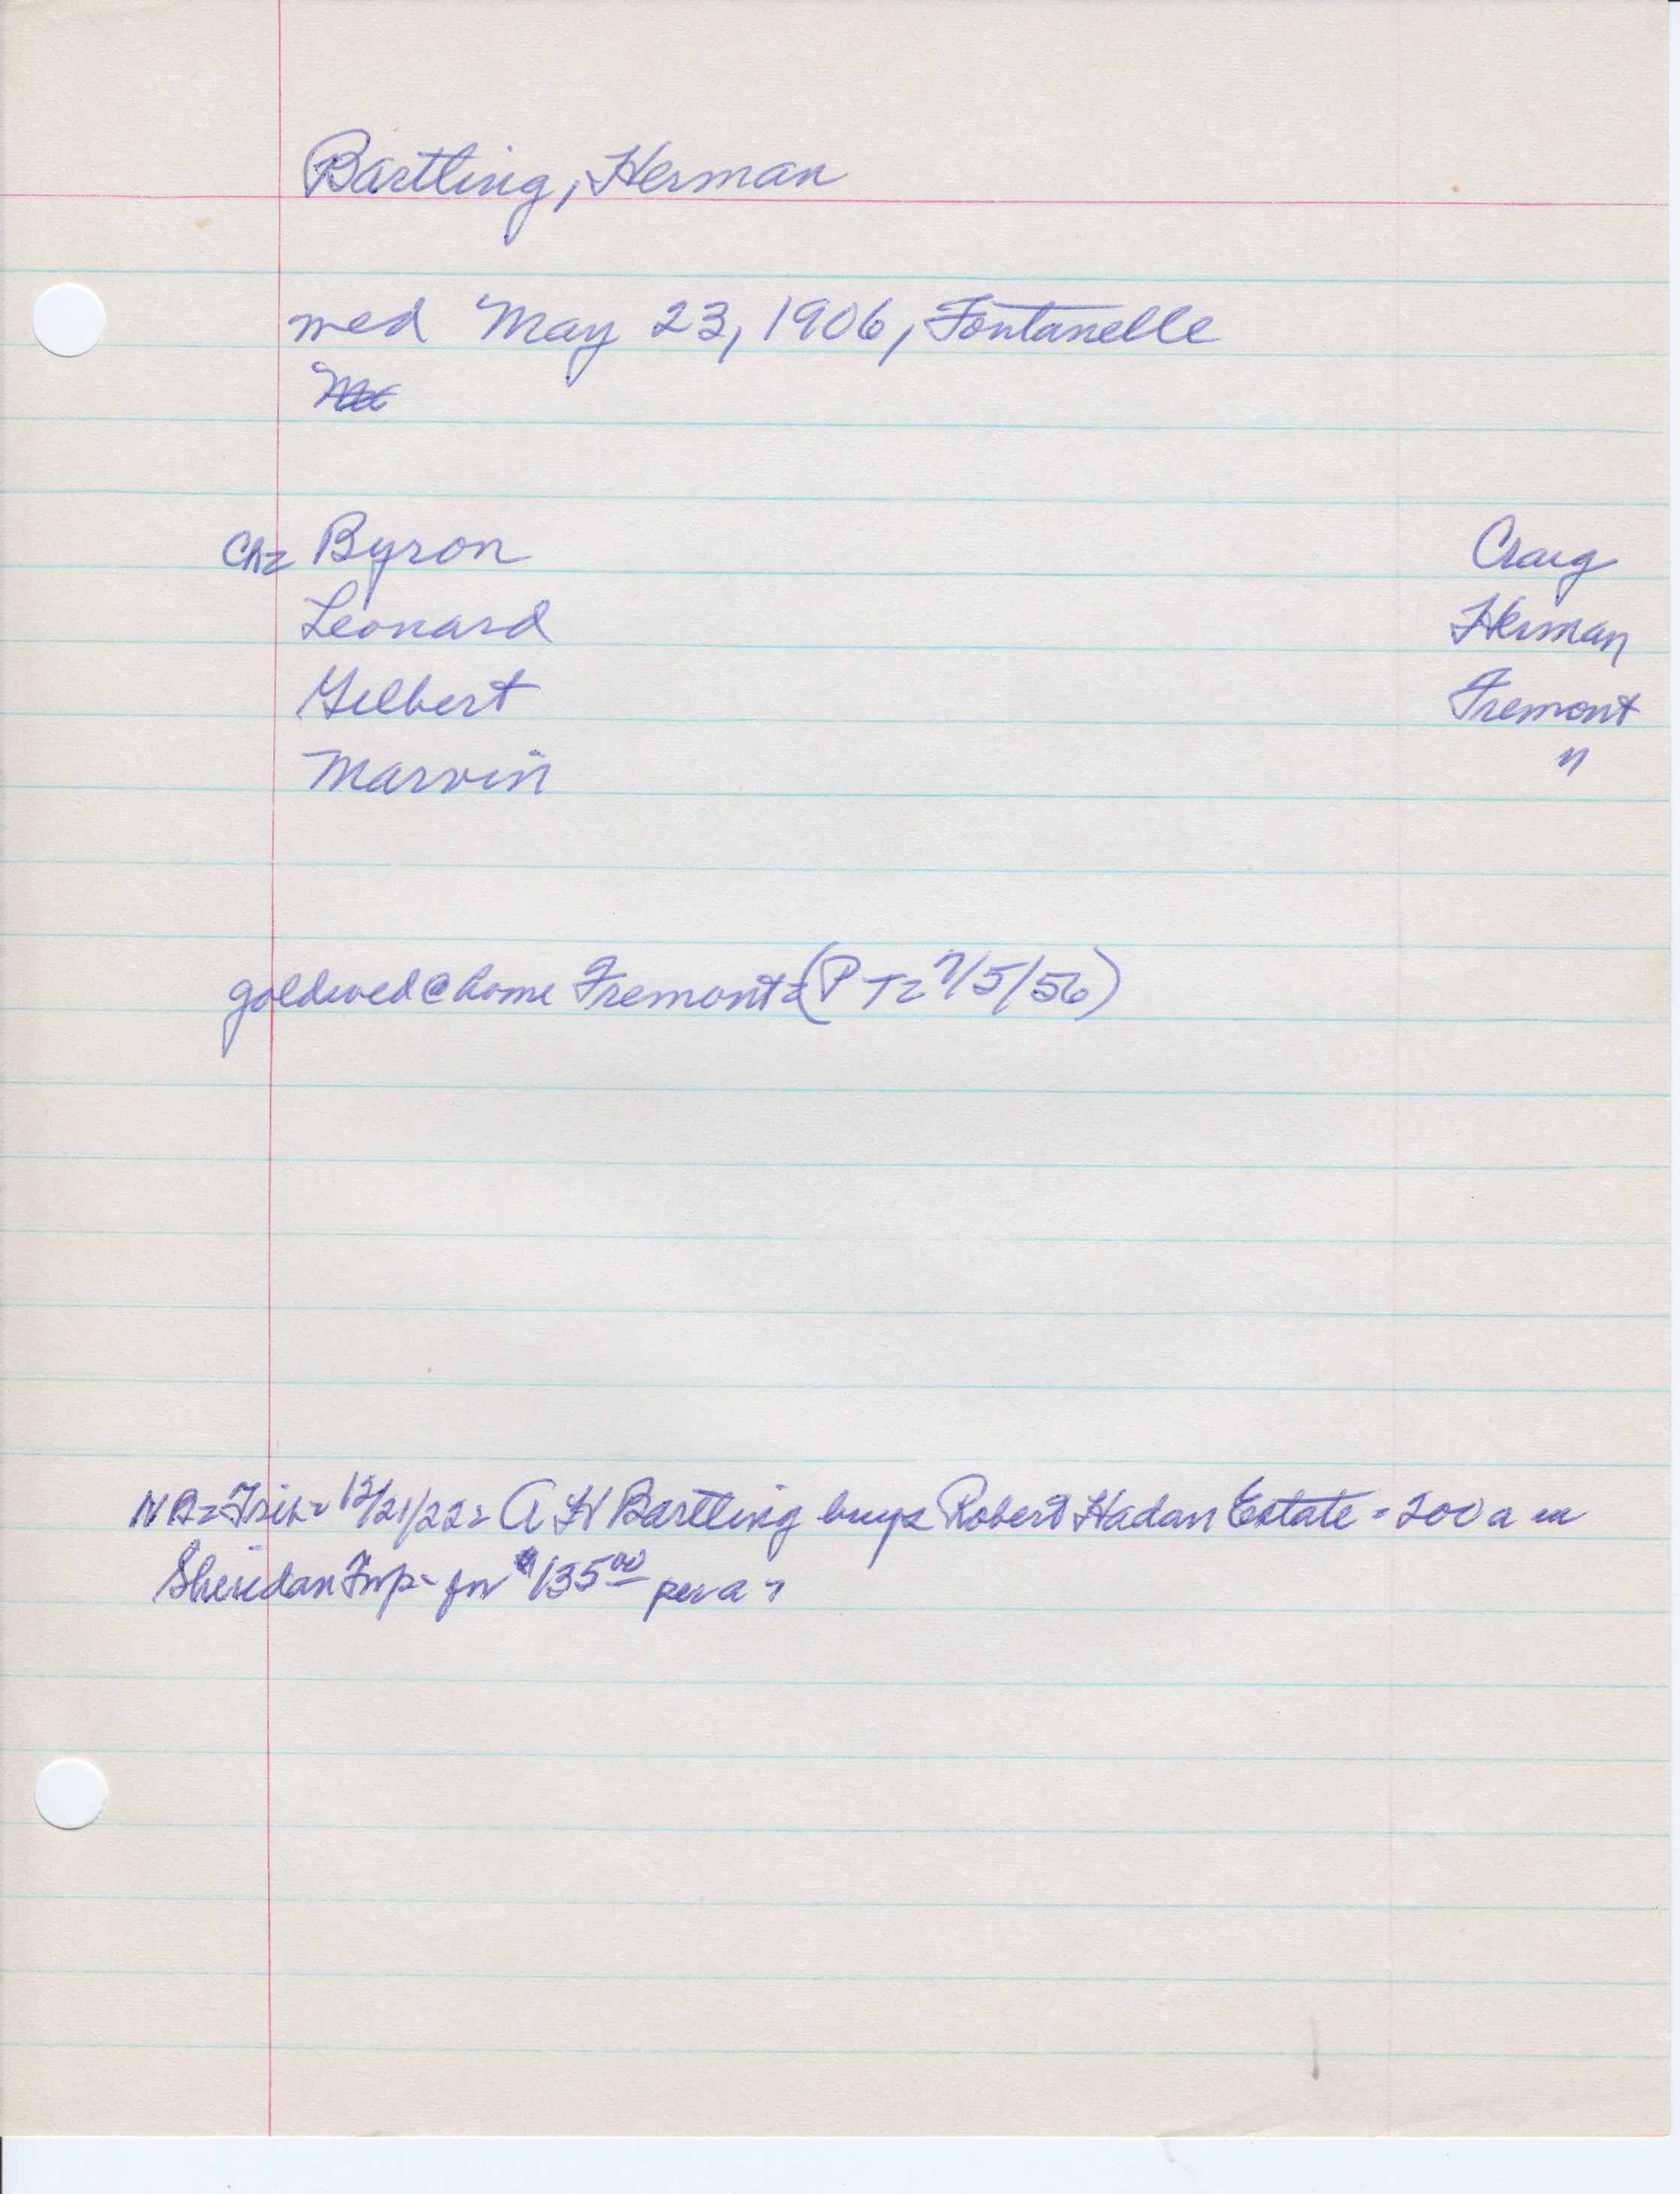 Bartling, Herman
wed May 23, 1906, Fontanelle
Ch= Byron Craig
Leonard Herman
Gilbert Fremont
Marvin "
goldwed @ home Fremont= (PT= 7/5/56)
12/21/22= A H Bartling buys Robert Hadan Estate - 200 a in
Sheridan Twp- for $135.00 per a